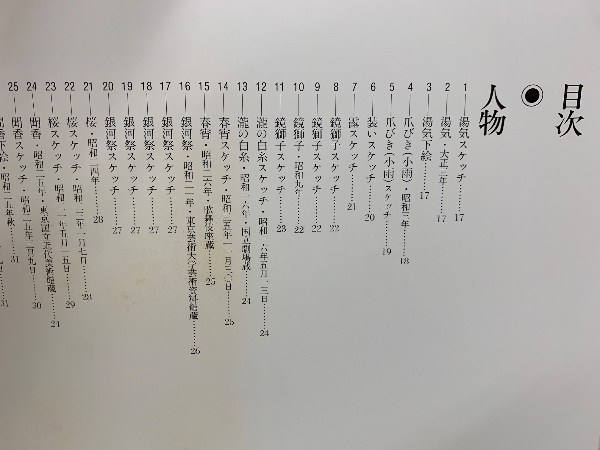 目次
人物
1──湯気スケッチ……17
2──湯気・大正二年……17
3──湯気下絵……17
4──爪びき(小雨)・昭和三年……18
5──爪びき(小雨)スケッチ……19
6──装いスケッチ……20
7──露スケッチ……21
8──鏡獅子スケッチ……22
9──鏡獅子スケッチ……22
10──鏡獅子・昭和九年……22
11──鏡獅子スケッチ……23
12──瀧の白糸スケッチ・昭和一六年五月一三日……24
13──瀧の白糸・昭和一六年・国立劇場蔵……24
14──春宵スケッチ・昭和二五年一二月三〇日……25
15──春宵・昭和二六年・歌舞伎座蔵……25
16──銀河祭・昭和二一年・東京芸術大学芸術資料館蔵……26
17──銀河祭スケッチ……27
18──銀河祭スケッチ……27
19──銀河祭スケッチ……27
20──銀河祭スケッチ……27
21──桜・昭和二四年……28
22──桜スケッチ・昭和二三年一月七日……28
23──桜スケッチ・昭和二一年五月一五日……29
24──聞香・昭和二五年・東京国立近代美術館蔵……24
聞香スケッチ・昭和二五年二月九日……30
25──聞香・昭和二五年秋……31
聞香下絵・昭和二
31